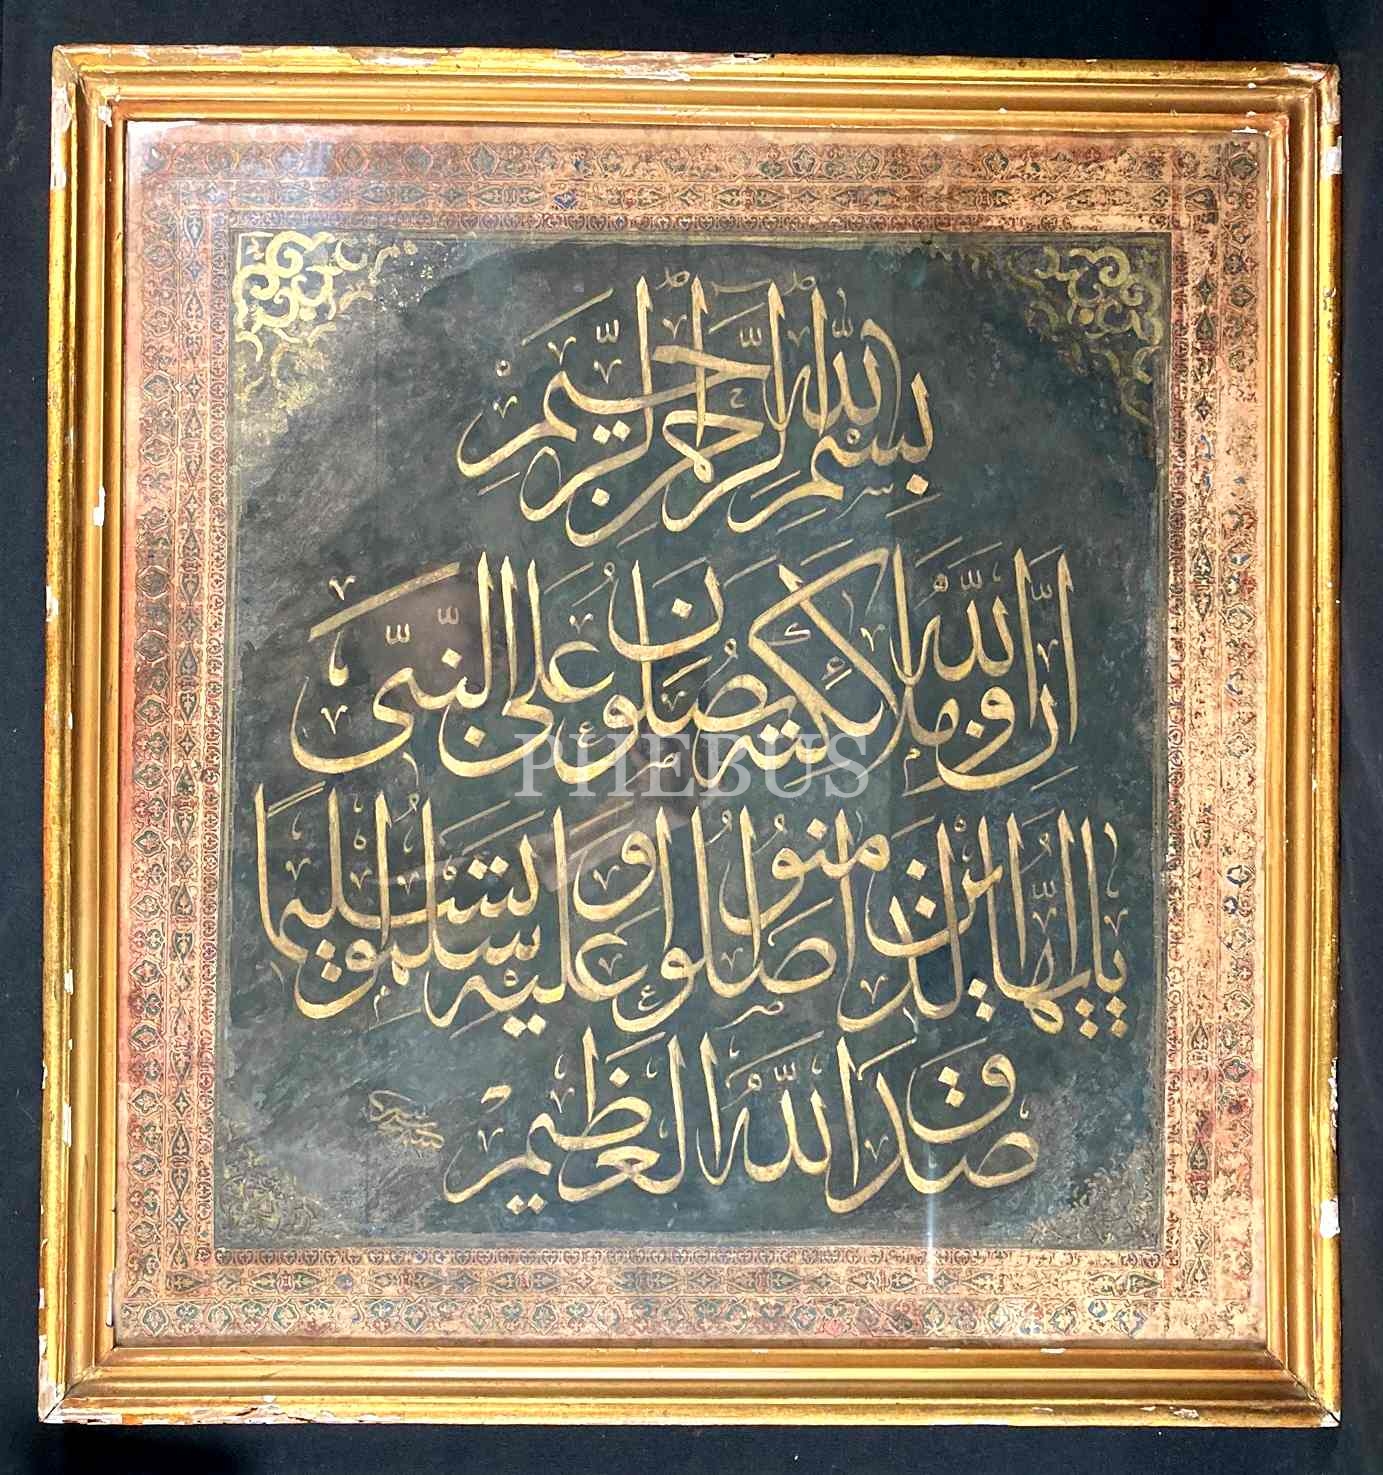 بِسْمِ اللّٰهِ الرَّحْمٰنِ الرَّحِيمِ
اِنَّ اللّٰهَ وَمَلَائِكَتَهُ يُصَلُّونَ عَلَى النَّبِيِّ
يَا اَيُّهَا الَّذِينَ اٰمَنُوا صَلُّوا عَلَيْهِ وَسَلِّمُوا تَسْلِيمًا
صَدَقَ اللّٰهُ الْعَظِيمُ
PHEBUS